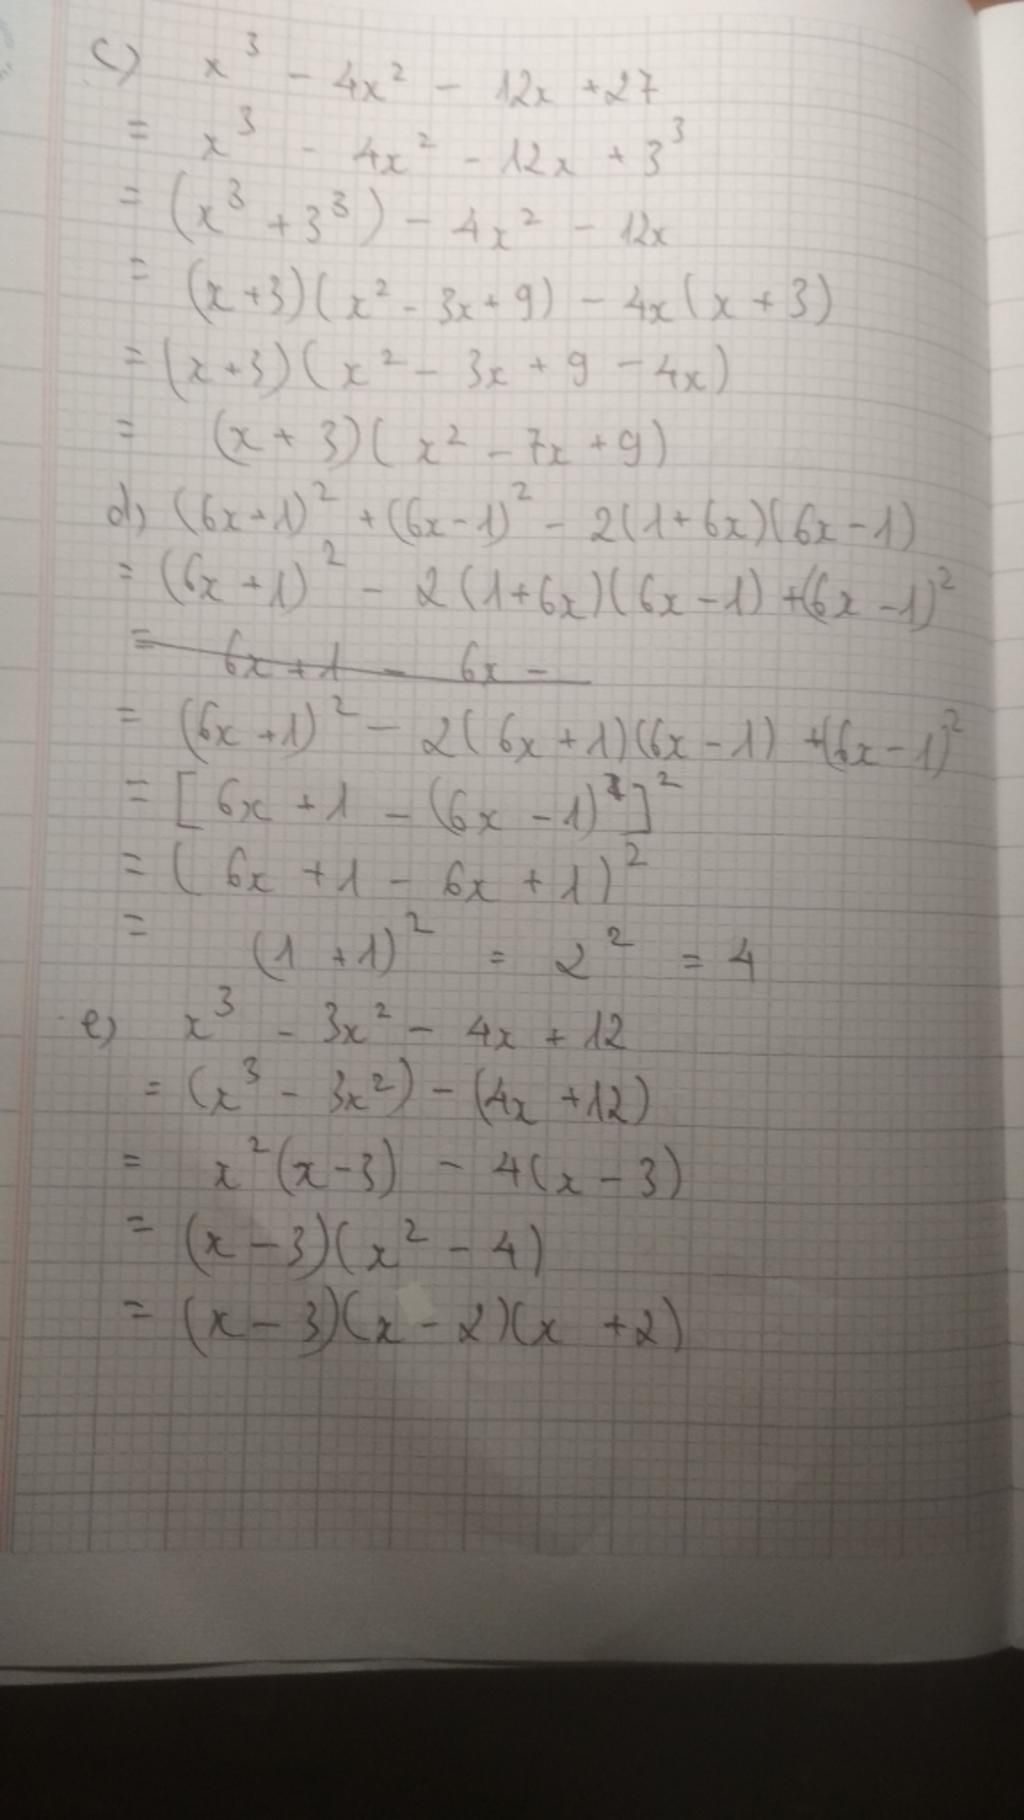 c) x³ - 4x² - 12x + 27
= x³ - 4x² - 12x + 3³
= (x³ + 3³) - 4x² - 12x
= (x + 3)(x² - 3x + 9) - 4x(x + 3)
= (x + 3)(x² - 3x + 9 - 4x)
= (x + 3)(x² - 7x + 9)
d) (6x + 1)² + (6x - 1)² - 2(1 + 6x)(6x - 1)
= (6x + 1)² - 2(1 + 6x)(6x - 1) + (6x - 1)²
= 6x + 1 - 6x -
= (6x + 1)² - 2(6x + 1)(6x - 1) + (6x - 1)²
= [6x + 1 - (6x - 1)]²
= (6x + 1 - 6x + 1)²
= (1 + 1)² = 2² = 4
e) x³ - 3x² - 4x + 12
= (x³ - 3x²) - (4x + 12)
= x²(x - 3) - 4(x - 3)
= (x - 3)(x² - 4)
= (x - 3)(x - 2)(x + 2)